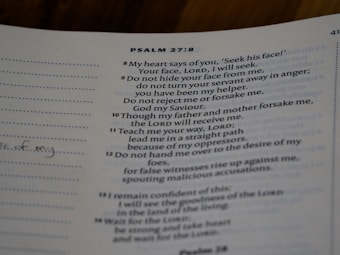 PSALM 27:8
8 My heart says of you, 'Seek his face!'
Your face, LORD, I will seek.
9 Do not hide your face from me,
do not turn your servant away in anger;
you have been my helper.
Do not reject me or forsake me,
God my Saviour.
10 Though my father and mother forsake me,
the LORD will receive me.
11 Teach me your way, LORD;
lead me in a straight path
because of my oppressors.
12 Do not hand me over to the desire of my
foes,
for false witnesses rise up against me,
spouting malicious accusations.
of my
13 I remain confident of this:
I will see the goodness of the LORD
in the land of the living.
14 Wait for the LORD;
be strong and take heart
and wait for the LORD.
Psalm 28